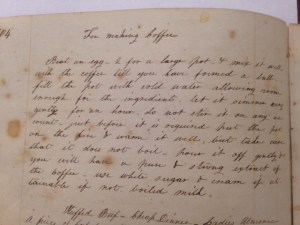 14
For making Coffee
Beat an egg - 2 for a large pot - & mix it well
with the coffee till you have formed a ball
fill the pot with cold water allowing room
enough for the ingredients. let it simmer very
gently for an hour. do not stir it on any ac
count. just before it is required put the pot
on the fire & warm it well, but take care
that it does not boil. pour it off gently &
you will have a pure & strong extract of
the coffee. use white sugar & cream if at
tainable if not boiled milk.
Beef - Cheap Dinner -
a piece of